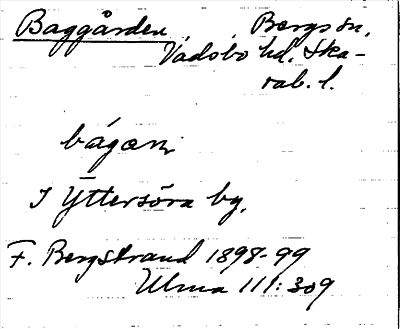 Baggården, Bergs sn,
Vadsbo hd. Ska-
rab. l.
bágæn
I Yttersöra by.
F. Bergstrand 1898-99
Ulma 111:309